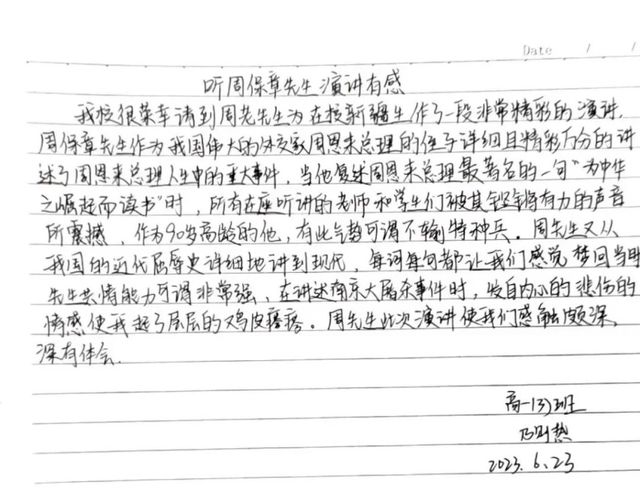 Date / /
听周保章先生演讲有感
我校很荣幸请到周老先生为在校新疆生作了一段非常精彩的演讲,
周保章先生作为我国伟大的外交家周恩来总理的侄子详细且精彩万分的讲
述了周恩来总理人生中的重大事件，当他复述周恩来总理最著名的一句"为中华
之崛起而读书"时，所有在座听讲的老师和学生们被其铿锵有力的声音
所震撼，作为90岁高龄的他，有此气势可谓不输特种兵。周先生又从
我国的近代历史详细地讲到现代，每词每句都让我们感觉梦回当时
先生共情能力可谓非常强、在讲述南京大屠杀事件时，发自内心的悲伤的
情感使我起了层层的鸡皮疙瘩。周先生此次演讲使我们感触颇深、
深有体会.
高一(3)班
乃则热
2023.6.23